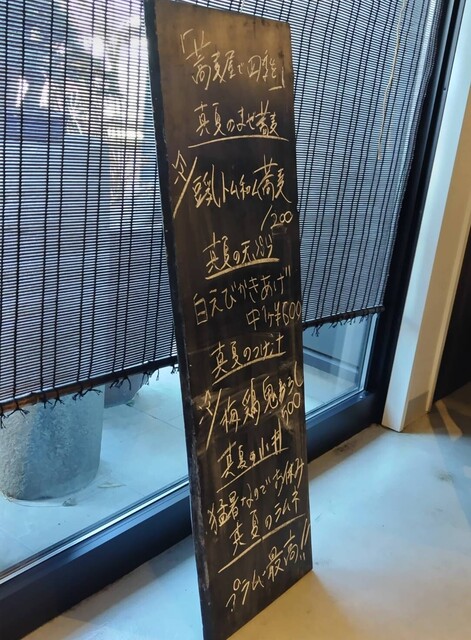 「蕎麦屋で四季を」
真夏のまぜ蕎麦
冷 豆乳トムヤム蕎麦
1200
真夏の天ぷら
白えびかきあげ
中1ケ ¥600
真夏のつけ汁
冷 梅鶏鬼おろし
600
真夏の小丼
猛暑なのでお休み
真夏のラムネ
プラム最高!!